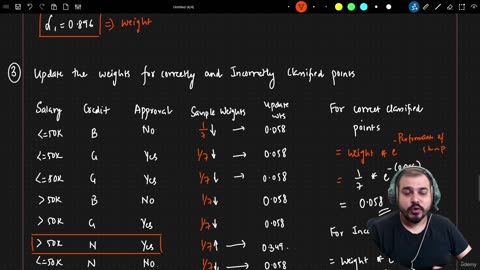 Untitled (4/4)
α₁ = 0.896 ⇒ Weight
③ Update the weights for correctly and Incorrectly classified points
Salary Credit Approval Sample Weights Update wts
<=50K B No 1/7 ↓ → 0.058
<=50K G Yes 1/7 ↓ → 0.058
<=50K G Yes 1/7 ↓ → 0.058
>50K B No 1/7 ↓ 0.058
>50K G Yes 1/7 ↓ 0.058
>50K N Yes 1/7 ↑ → 0.349.
<=50K N No 1/7 ↓ → 0.058
For correct classified
points
= weight * e -Performance of stump
= 1/7 * e
= 0.058
For Inc
= weight *
Udemy